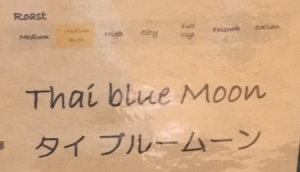 Roast
Medium Medium High City Full City French Italian
Thai blue Moon
タイ ブルームーン